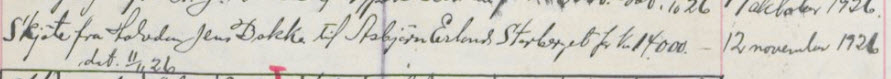 26 1 oktober 1926.
Skjøte fra Halvdan Jens Dokka til Asbjørn Erlands Storberget for kr 14000. – 12 november 1926
dat. 11/11 26